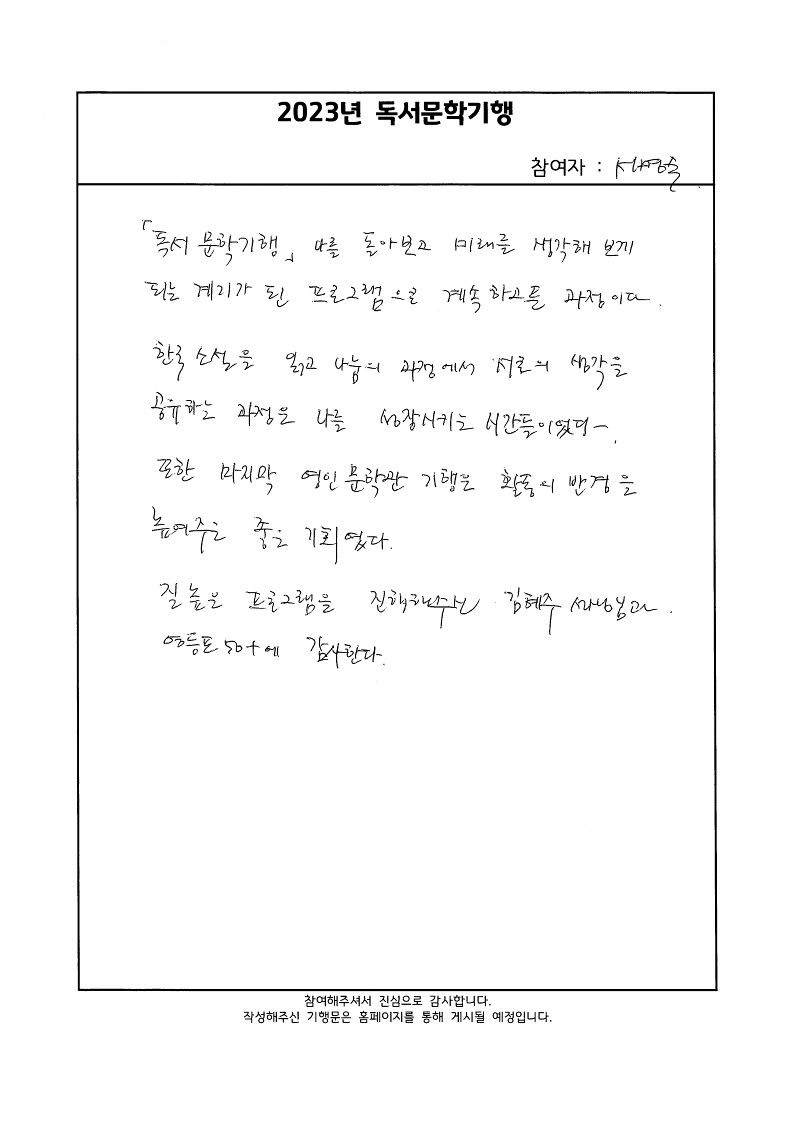 2023년 독서문학기행
참여자 : 서영숙
「독서 문학기행」 나를 돌아보고 미래를 생각해 보게
되는 계기가 된 프로그램으로 계속하고픈 과정이다.
한국 소설을 읽고 나눔의 과정에서 서로의 생각을
공유하는 과정은 나를 성장시키는 시간들이었다.
또한 마지막 영인문학관 기행은 활동의 반경을
높여주는 좋은 기회였다.
질 높은 프로그램을 진행해주신 김혜주 선생님과
영등포 50+에 감사한다.
참여해주셔서 진심으로 감사합니다.
작성해주신 기행문은 홈페이지를 통해 게시될 예정입니다.